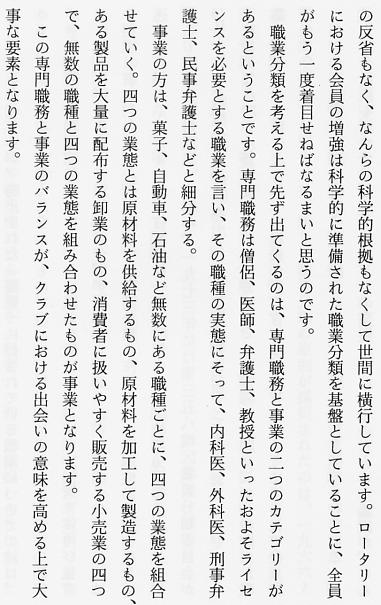 の反省もなく、なんらの科学的根拠もなくして世間に横行しています。ロータリー
における会員の増強は科学的に準備された職業分類を基盤としていることに、全員
がもう一度着目せねばなるまいと思うのです。
職業分類を考える上で先ず出てくるのは、専門職務と事業の二つのカテゴリーが
あるということです。専門職務は僧侶、医師、弁護士、教授といったおよそライセ
ンスを必要とする職業を言い、その職種の実態にそって、内科医、外科医、刑事弁
護士、民事弁護士などと細分する。
事業の方は、菓子、自動車、石油など無数にある職種ごとに、四つの業態を組合
せていく。四つの業態とは原材料を供給するもの、原材料を加工して製造するもの、
ある製品を大量に配布する卸業のもの、消費者に扱いやすく販売する小売業の四つ
で、無数の職種と四つの業態を組み合わせたものが事業となります。
この専門職務と事業のバランスが、クラブにおける出会いの意味を高める上で大
事な要素となります。